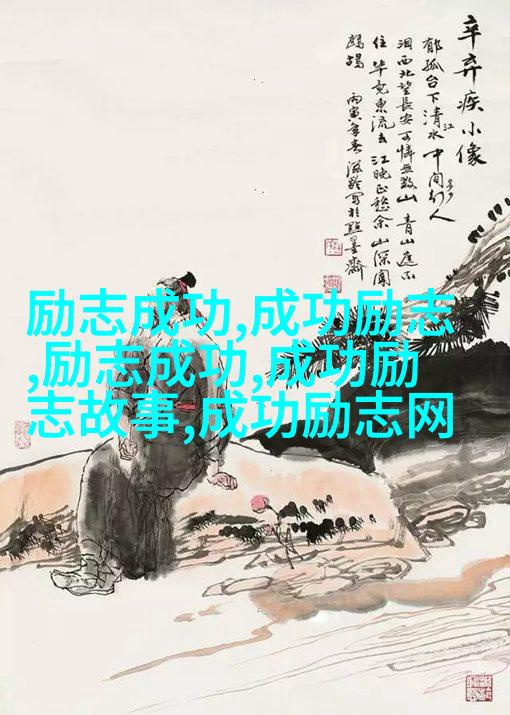 辛弃疾小像
郁孤台下清江水 中间多少行人
泪西北望長安可憐無数山 青山遮不
住 毕竟東流去 江晚正愁余 山深聞
鹧鸪 丙寅年春 滋龄写於點墨齋
励志成功,成功励志
,励志成功,成功励
志故事,成功励志网